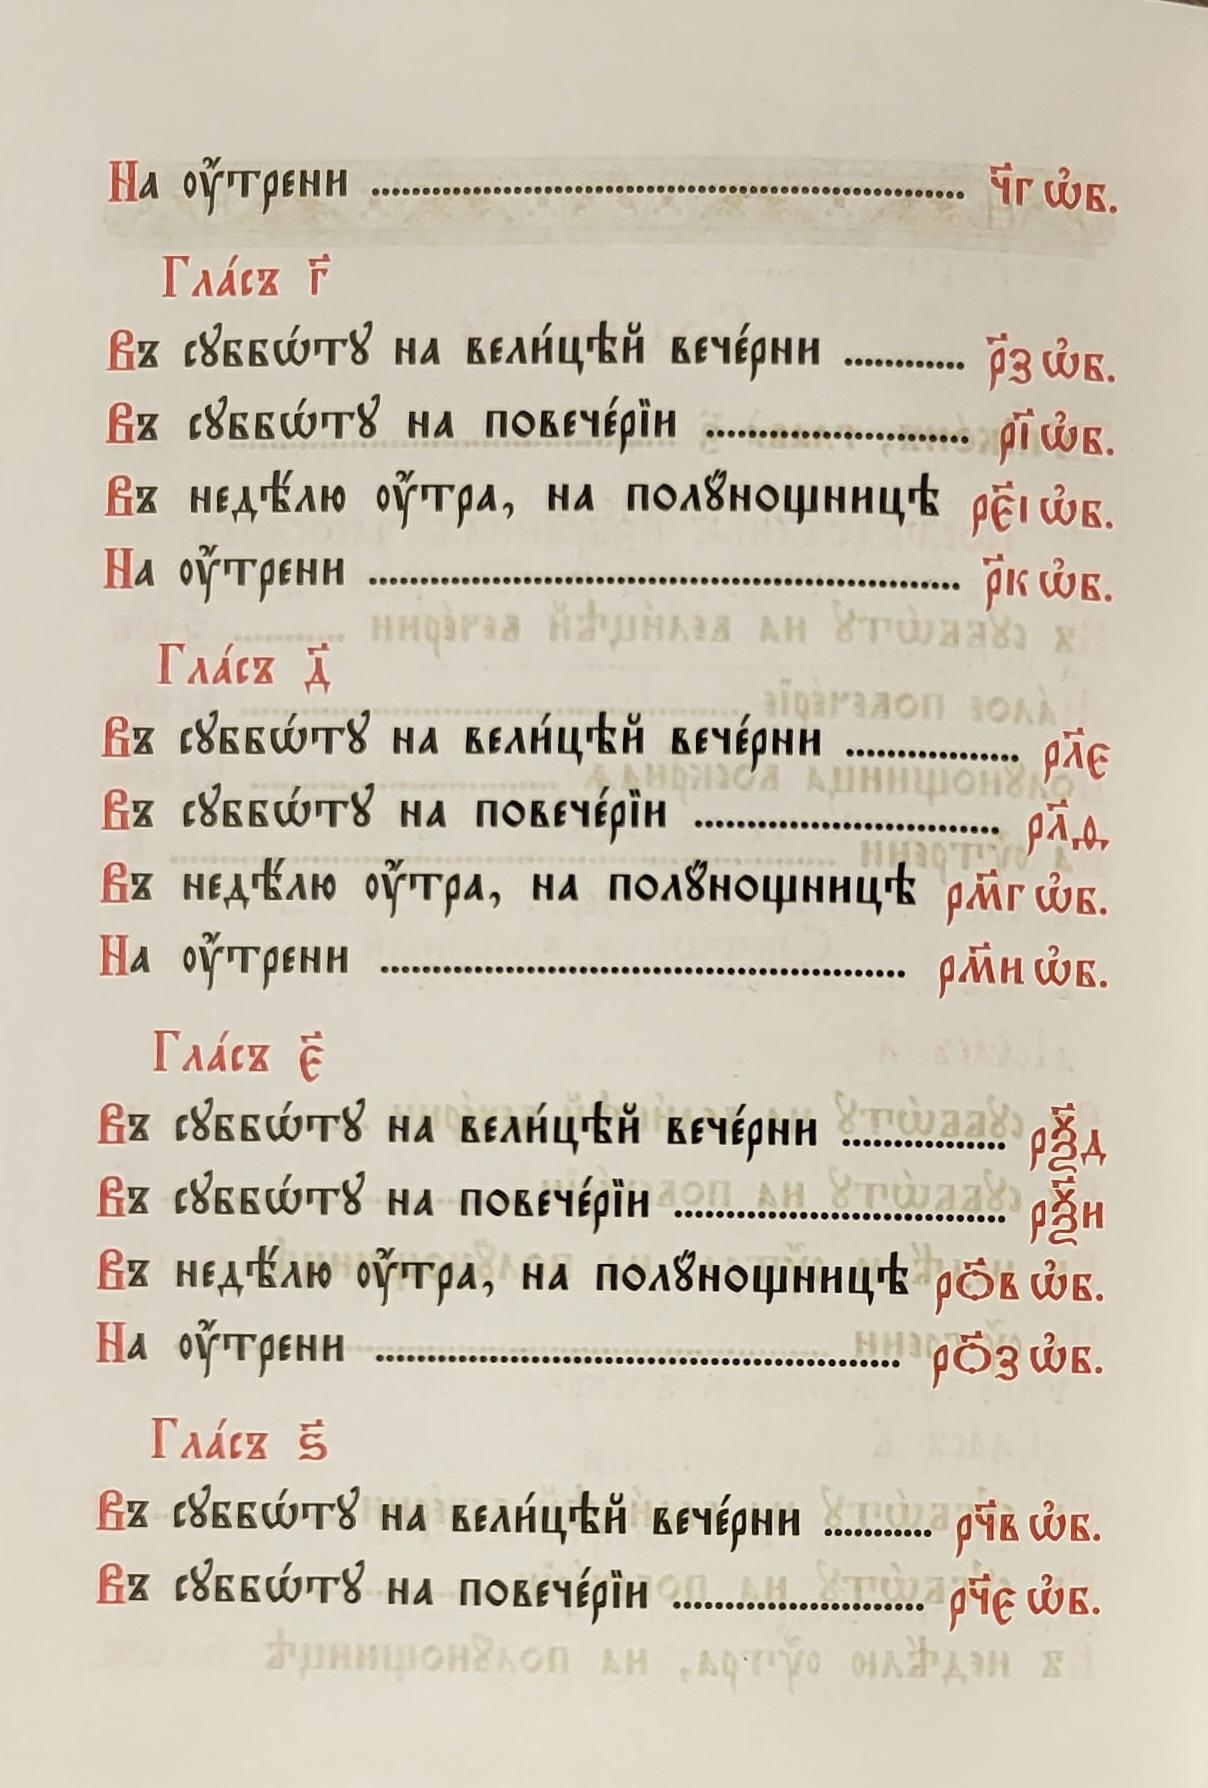 На ᲂу҆́трени ........ ч҃г ѡ҆б.
Гла́съ г҃
Въ сꙋббѡ́тꙋ на вели́цѣй вече́рни ........ р҃з ѡ҆б.
Въ сꙋббѡ́тꙋ на повече́рїи ........ рі҃ ѡ҆б.
Въ недѣ́лю ᲂу҆́тра, на полꙋ́нощницѣ рє҃і ѡ҆б.
На ᲂу҆́трени ........ р҃к ѡ҆б.
Гла́съ д҃
Въ сꙋббѡ́тꙋ на вели́цѣй вече́рни ........ рл҃є
Въ сꙋббѡ́тꙋ на повече́рїи ........ рл҃д
Въ недѣ́лю ᲂу҆́тра, на полꙋ́нощницѣ рм҃г ѡ҆б.
На ᲂу҆́трени ........ рм҃н ѡ҆б.
Гла́съ є҃
Въ сꙋббѡ́тꙋ на вели́цѣй вече́рни ........ рѯ҃д
Въ сꙋббѡ́тꙋ на повече́рїи ........ рѯ҃и
Въ недѣ́лю ᲂу҆́тра, на полꙋ́нощницѣ ро҃в ѡ҆б.
На ᲂу҆́трени ........ ро҃з ѡ҆б.
Гла́съ ѕ҃
Въ сꙋббѡ́тꙋ на вели́цѣй вече́рни ........ рч҃в ѡ҆б.
Въ сꙋббѡ́тꙋ на повече́рїи ........ рч҃є ѡ҆б.